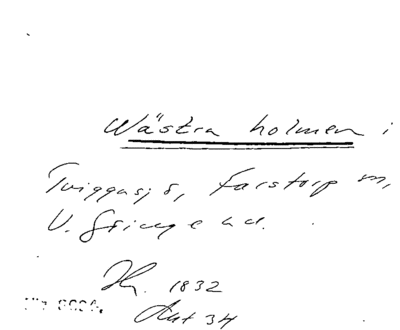 Wästra holmen i
Tviggasjö, Farstorp sn,
V. Göinge hd.
1832
Akt 34